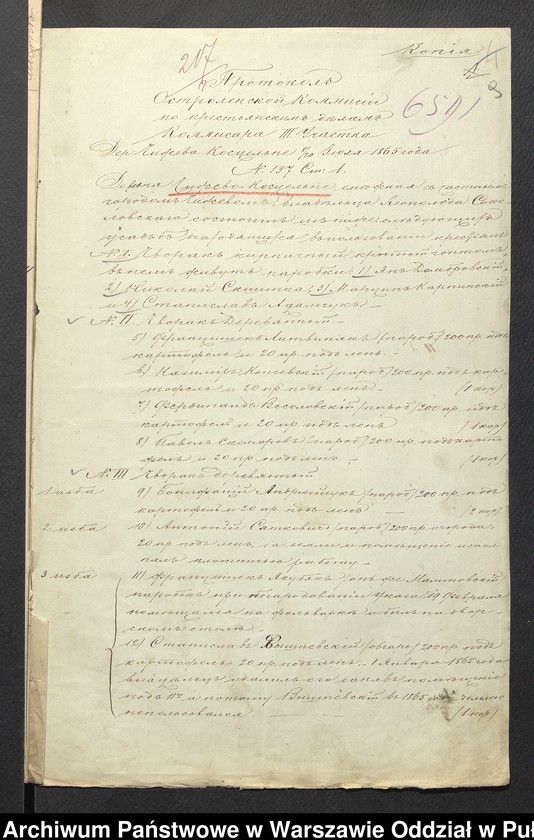 Копія
217
Протоколъ
Остроленской Коммисіи
по крестьянскимъ дѣламъ
6511
Коммисара III Участка
Дер. Чижево Косцельне Іюля 1865 года
№ 137 Ст. 1.
Деревня Чижево-Косцельне, смежная съ частнымъ
городомъ Чижевомъ, владѣльца Леопольда
состоитъ изъ нижеслѣдующихъ
усадьбъ находящихся въ пользованіи крестьянъ
№ I. Чворакъ кирпичный крытый гонтомъ,
въ немъ живутъ паробки: 1) Янъ Домбровскій,
2) Николай 3) Марцинъ Карпинскій
и 4) Станиславъ Адамчукъ.
№ II. Чворакъ деревянный
5) Францишекъ Литвинякъ /пароб/ 200 пр. подъ
картофель и 20 пр. подъ ленъ.
6) Казиміръ /пароб/ 200 пр. подъ кар-
тофель и 20 пр. подъ ленъ. (1 кор)
7) Фердинандъ Весоловскій /пароб/ 200 пр. подъ
картофель и 20 пр. подъ ленъ (1 кор)
8) Павелъ /пароб/ 200 пр. подъ карто
фель и 20 пр. подъ ленъ. (1 кор)
№ III Чворакъ деревянный
1 изба 9) Бонифацій Андржейчукъ /пароб/ 200 пр. подъ
картофель и 20 пр. подъ ленъ. (2 кор)
2 изба 10) Антоній /пароб/ 200 пр. огорода,
20 пр. подъ ленъ, за земли и помѣщеніе испол-
нялъ плотничью работу.
3 изба 11) Францишекъ Якубякъ, онъ же Малиновскій
паробокъ при обнародованіи Указа 19 Февраля
помѣщался на фольваркѣ и былъ на двор-
скомъ столѣ.
12) Станиславъ Вышневскій /овчаръ/ 200 пр. подъ
картофель 20 пр. подъ ленъ. 1 Января 1865 года
владѣлецъ удалилъ его занявъ помѣщеніе
а потому Вышневскій въ 1865 землею
непользовался (1 кор)
Archiwum Państwowe w Warszawie Oddział w Puł